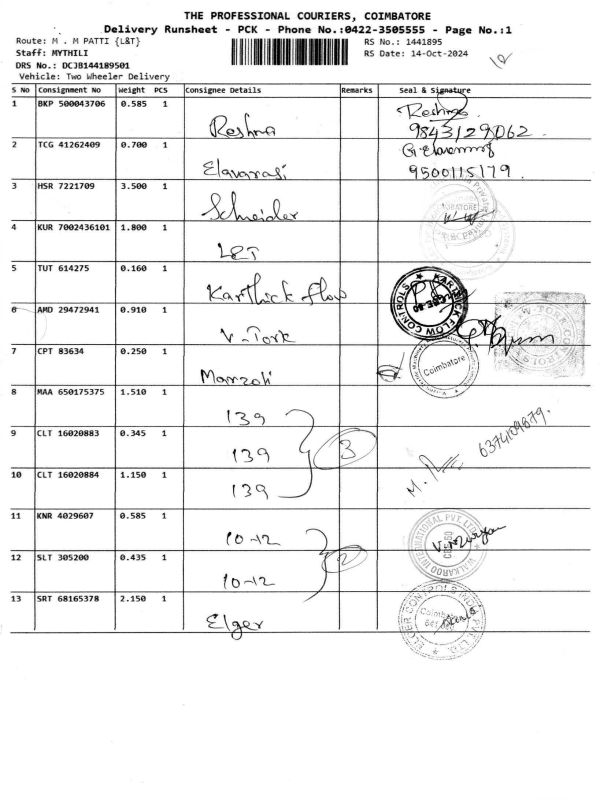 THE PROFESSIONAL COURIERS, COIMBATORE
Delivery Runsheet - PCK - Phone No.:0422-3505555 - Page No.:1
Route: M . M PATTI {L&T} RS No.: 1441895
Staff: MYTHILI RS Date: 14-Oct-2024
DRS No.: DCJB144189501
Vehicle: Two Wheeler Delivery
S No Consignment No Weight PCS Consignee Details Remarks Seal & Signature
1 BKP 500043706 0.585 1 Reshma Reshma 9843129062
2 TCG 41262409 0.700 1 Elavarasi 9500115179
3 HSR 7221709 3.500 1 Schneider
4 KUR 7002436101 1.800 1 L&T
5 TUT 614275 0.160 1 Karthick Flow KARTHICK FLOW CONTROLS
6 AMD 29472941 0.910 1 V-Tork
7 CPT 83634 0.250 1 Manzoli Coimbatore
8 MAA 650175375 1.510 1 139
9 CLT 16020883 0.345 1 139 3 6374109879
10 CLT 16020884 1.150 1 139
11 KNR 4029607 0.585 1 10-12 WALKAROO INTERNATIONAL PVT. LTD.
12 SLT 305200 0.435 1 10-12 2
13 SRT 68165378 2.150 1 Elger ELGER CONTROLS INDIA PVT. LTD.